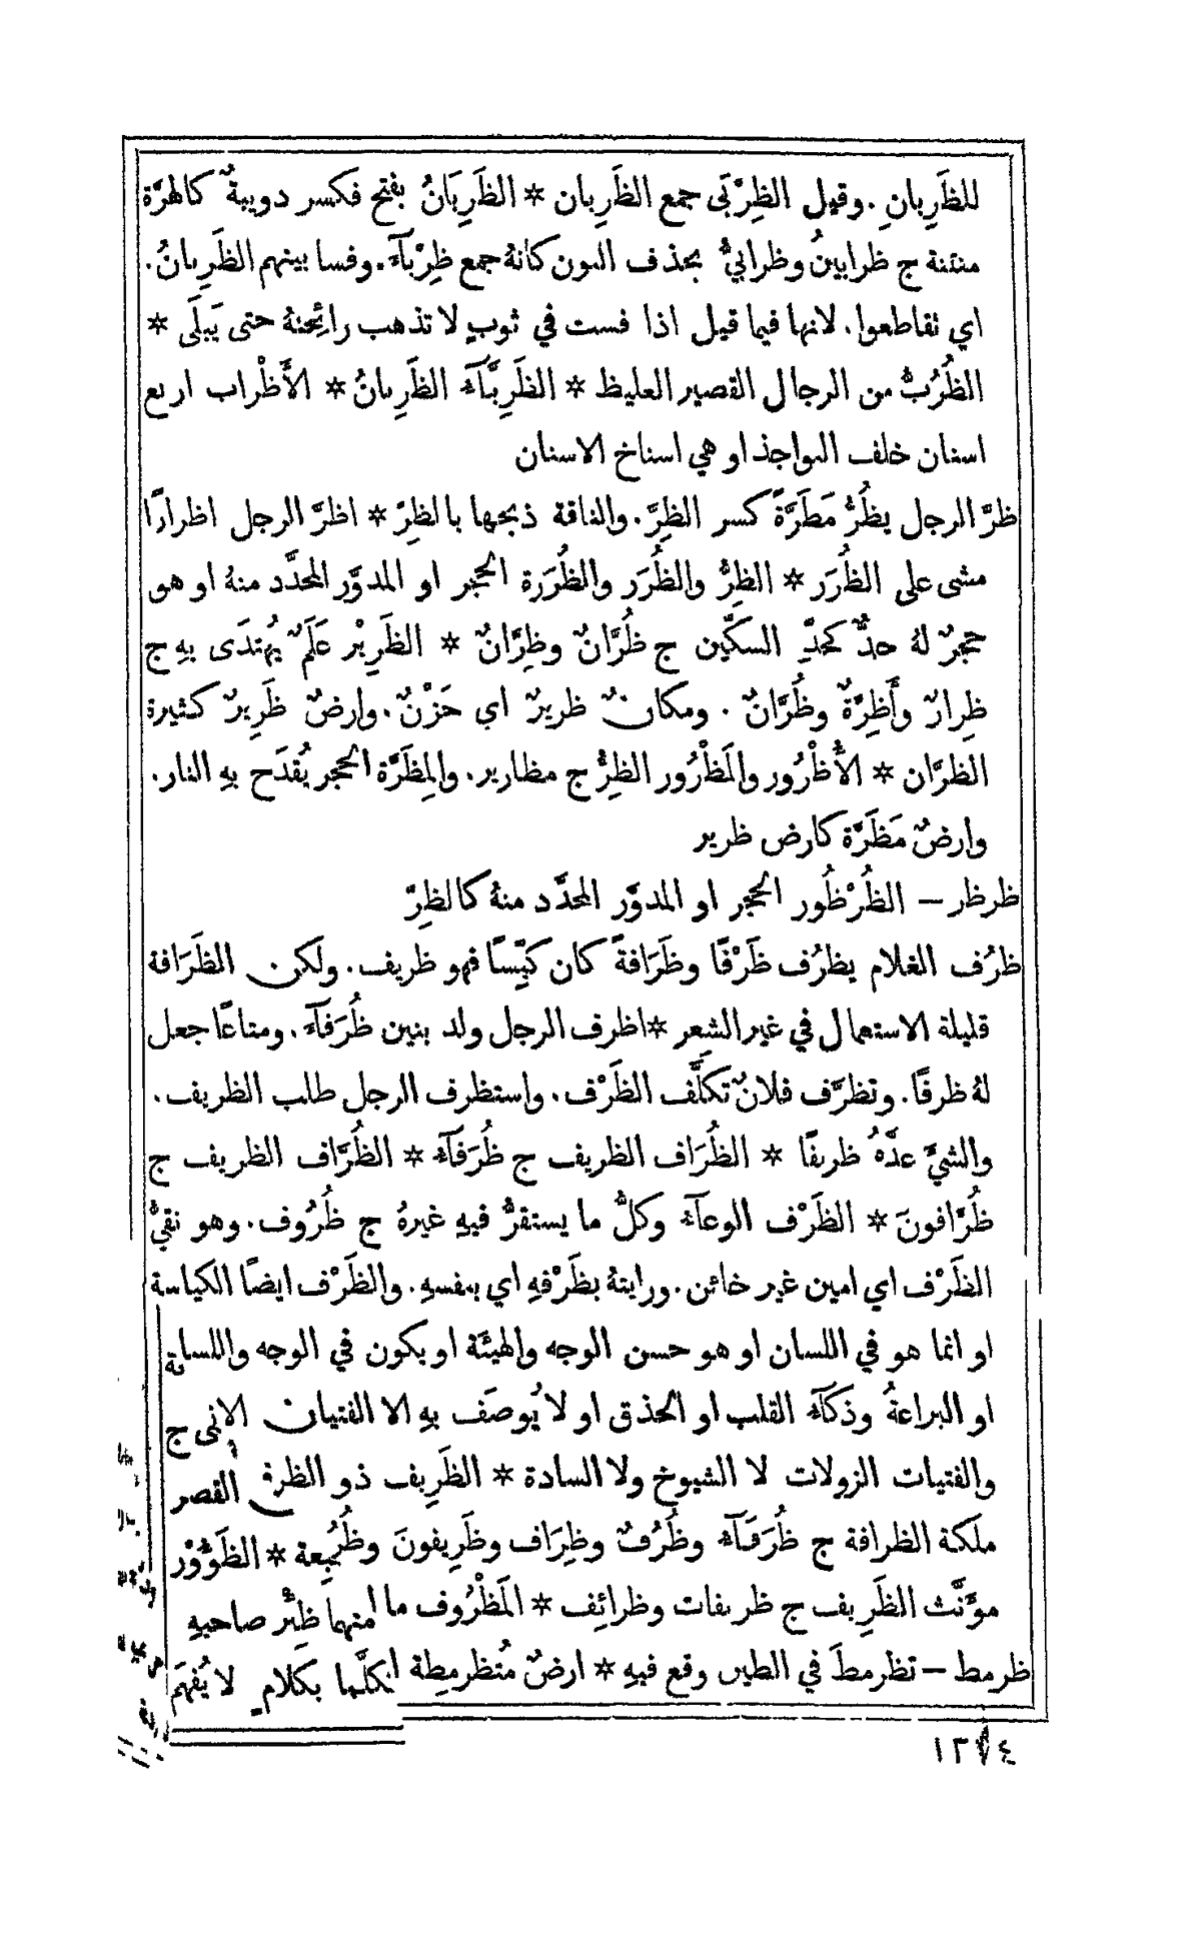 للظَرِبانِ. وقيل الظِرْبَى جمع الظَرِبان * الظَرِبَانُ بفتح فكسر دويبةٌ كالهرَّة
منتنة ج ظرابينُ وظرابيُّ بحذف النون كانهُ جمع ظِرْبآءَ. وفسا بينهم الظَرِبانُ.
اي تقاطعوا. لانها فيما قيل اذا فست في ثوبٍ لا تذهب رائِحتهُ حتى يَبلَى *
الظُرُبُّ من الرجال القصير الغليظ * الظَرِبَّآءُ الظَرِبانُ * الأَظْراب اربع
اسنان خلف النواجذ او هي اسناخ الاسنان
ظرَّ الرجل يظُرُّ مَظَرَّةً كسر الظِرَّ. والناقة ذبحها بالظِرّ * اظرَّ الرجل اظرارًا
مشى على الظُرَر * الظِرُّ والظُرَر والظُرَرة الحجر او المدوَّر المحدَّد منهُ او هو
حجرٌ لهُ حدٌّ كحدِّ السكّين ج ظُرَّانٌ وظِرَّانٌ * الظَرِيْر عَلَمٌ يُهتدَى بهِ ج
ظِرارٌ وأَظِرَّةٌ وظُرَّانٌ . ومكانٌ ظريرٌ اي حَزْنٌ. وارضٌ ظَرِيرٌ كثيرة
الظرَّان * الأُظْرُور والمَظْرُور الظِرُّ ج مظارير. والمِظَرَّة الحجر يُقدَح بهِ النار.
وارضٌ مَظَرَّة كارض ظرير
ظرظر – الظُرْظُور الحجر او المدوَّر المحدَّد منهُ كالظِرّ
ظرُف الغلام يظرُف ظَرْفًا وظَرَافةً كان كَيِّسًا فهو ظريف. ولكن الظَرَافة
قليلة الاستعمال في غير الشِعر * اظرف الرجل ولد بنين ظُرَفآءَ. ومتاعًا جعل
لهُ ظرفًا. وتظرَّف فلانٌ تكلَّف الظَرْف. واستظرف الرجل طلب الظريف.
والشيَّ عدَّهُ ظريفًا * الظُرَاف الظريف ج ظُرَفآءُ * الظُرَّاف الظريف ج
ظُرَّافونَ * الظَرْف الوعآءُ وكلُّ ما يستقرُّ فيهِ غيرهُ ج ظُرُوف. وهو نقيُّ
الظَرْف اي امين غير خائن. ورايتهُ بظَرْفهِ اي بنفسهِ. والظَرْف ايضًا الكياسة
او انما هو في اللسان او هو حسن الوجه والهيئَة او يكون في الوجه واللسان
او البراعةُ وذكآءُ القلب او الحذق او لا يُوصَف بهِ الا الفتيان
والفتيات الزولات لا الشيوخ ولا السادة * الظَرِيف ذو الظرف القصر
ملكة الظرافة ج ظُرَفَآءُ وظُرُفٌ وظِرَاف وظَرِيفونَ * الظَوُّوْر
موَنَّث الظَرِيف ج ظريفات وظرائِف * المَظْرُوف ما منهما ظِئْر صاحبهِ
ظرمط – تظرمطَ في الطين وقع فيهِ * ارضٌ مُتظرمِطة تكلَّما بكلامٍ لا يُفهَم
١٣٧٤